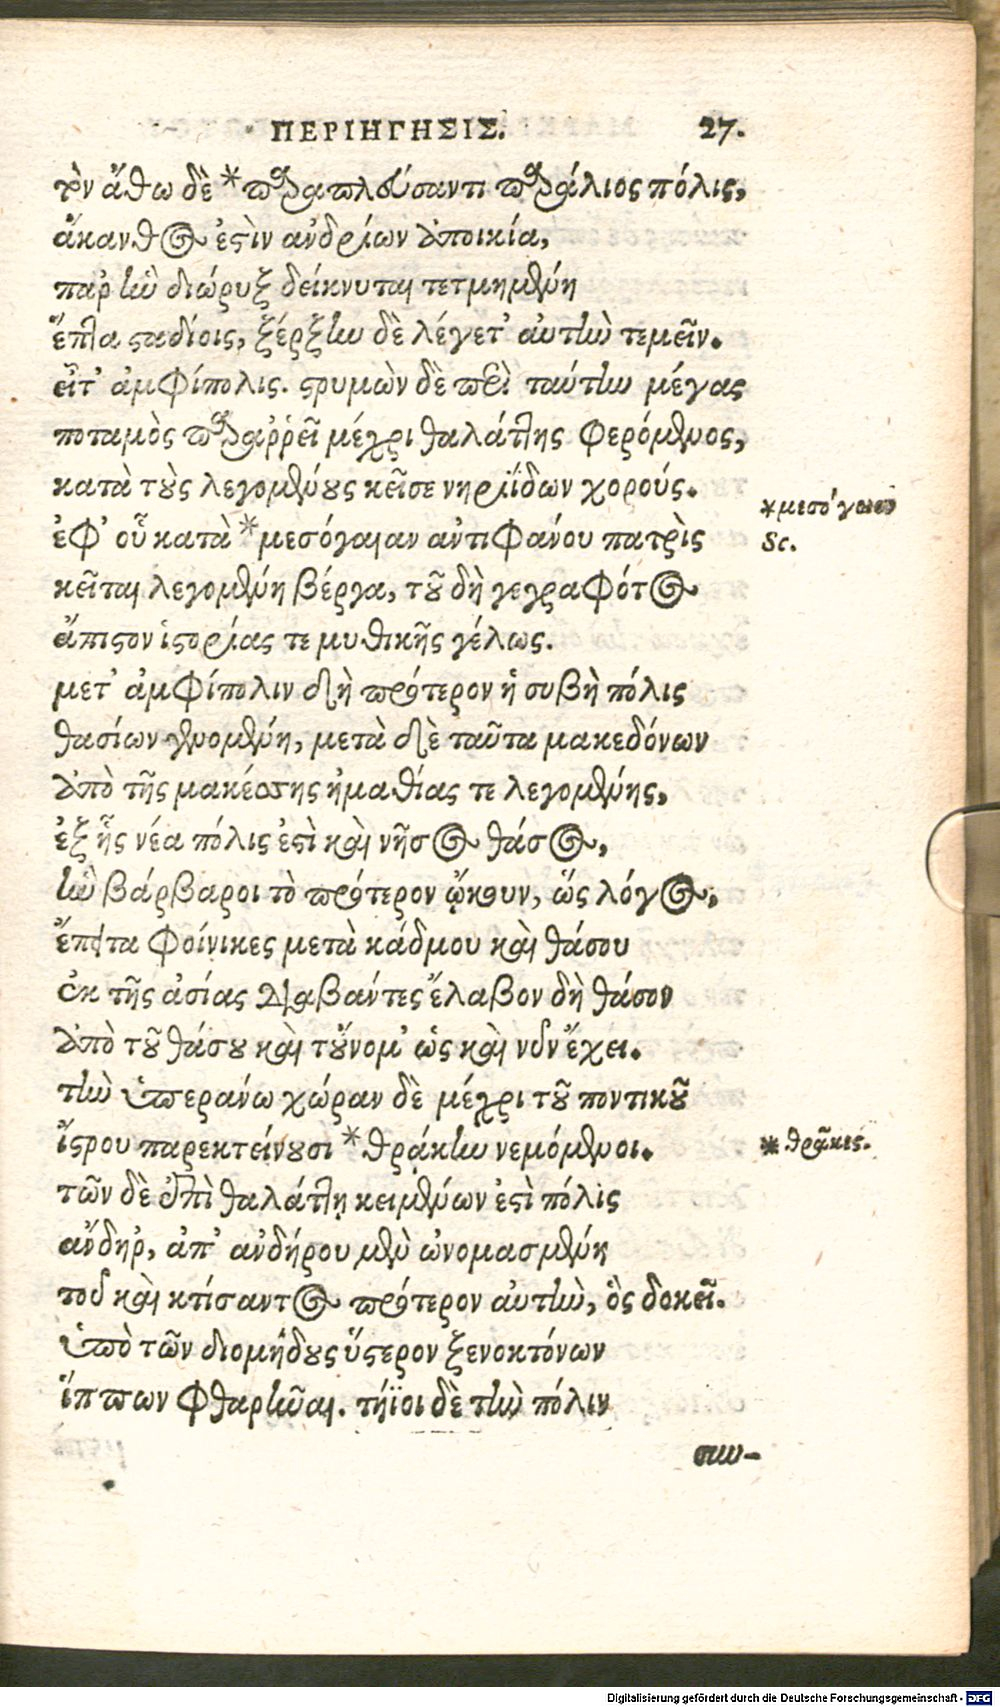 ΠΕΡΙΗΓΗΣΙΣ. 27.
τὸν ἄθω δὲ *παραπλεύσαντι παράλιος πόλις,
ἄκανθος ἐςὶν ἀνδρίων ἀποικία,
παρ' ἣν διώρυξ δείκνυται τετμημένη
ἕπτα ςαδίοις, ξέρξην δὲ λέγετ' αὐτὴν τεμεῖν.
εἶτ' ἀμφίπολις. ςρυμὼν δὲ περὶ ταύτην μέγας
ποταμὸς παραῤῥεῖ μέχρι θαλάττης φερόμενος,
κατὰ τοὺς λεγομένους κεῖσε νηρηΐδων χορούς.
*μεσόγαιον
ἐφ' οὗ κατὰ *μεσόγαιαν ἀντιφάνου πατρὶς
Sc.
κεῖται λεγομένη βέργα, τοῦ δὴ γεγραφότος
ἄπιςον ἱςορίας τε μυθικῆς γέλως.
μετ' ἀμφίπολιν δὴ πρότερον ἡ συβὴ πόλις
θασίων γενομένη, μετὰ δὲ ταῦτα μακεδόνων
ἀπὸ τῆς μακέσσης ἠμαθίας τε λεγομένης,
ἐξ ἧς νέα πόλις ἐςὶ καὶ νῆσος θάσος,
ἣν βάρβαροι τὸ πρότερον ᾤκουν, ὥς λόγος,
ἔπειτα φοίνικες μετὰ κάδμου καὶ θάσου
ἐκ τῆς ἀσίας διαβάντες ἔλαβον δὴ θάσον
ἀπὸ τοῦ θάσου καὶ τοὔνομ' ὡς καὶ νῦν ἔχει.
τὴν ὑπεράνω χώραν δὲ μέχρι τοῦ ποντικοῦ
ἴςρου παρεκτείνουσι *θράκην νεμόμενοι.
*θρᾷκες.
τῶν δὲ ἐπὶ θαλάττῃ κειμένων ἐςὶ πόλις
ἄνδηρ', ἀπ' ἀνδήρου μὲν ὠνομασμένη
τοῦ καὶ κτίσαντος πρότερον αὐτὴν, ὃς δοκεῖ.
ὑπὸ τῶν διομήδους ὕςερον ξενοκτόνων
ἵππων φθαρῆναι. τήϊοι δὲ τὴν πόλιν
συν-
Digitalisierung gefördert durch die Deutsche Forschungsgemeinschaft - DFG